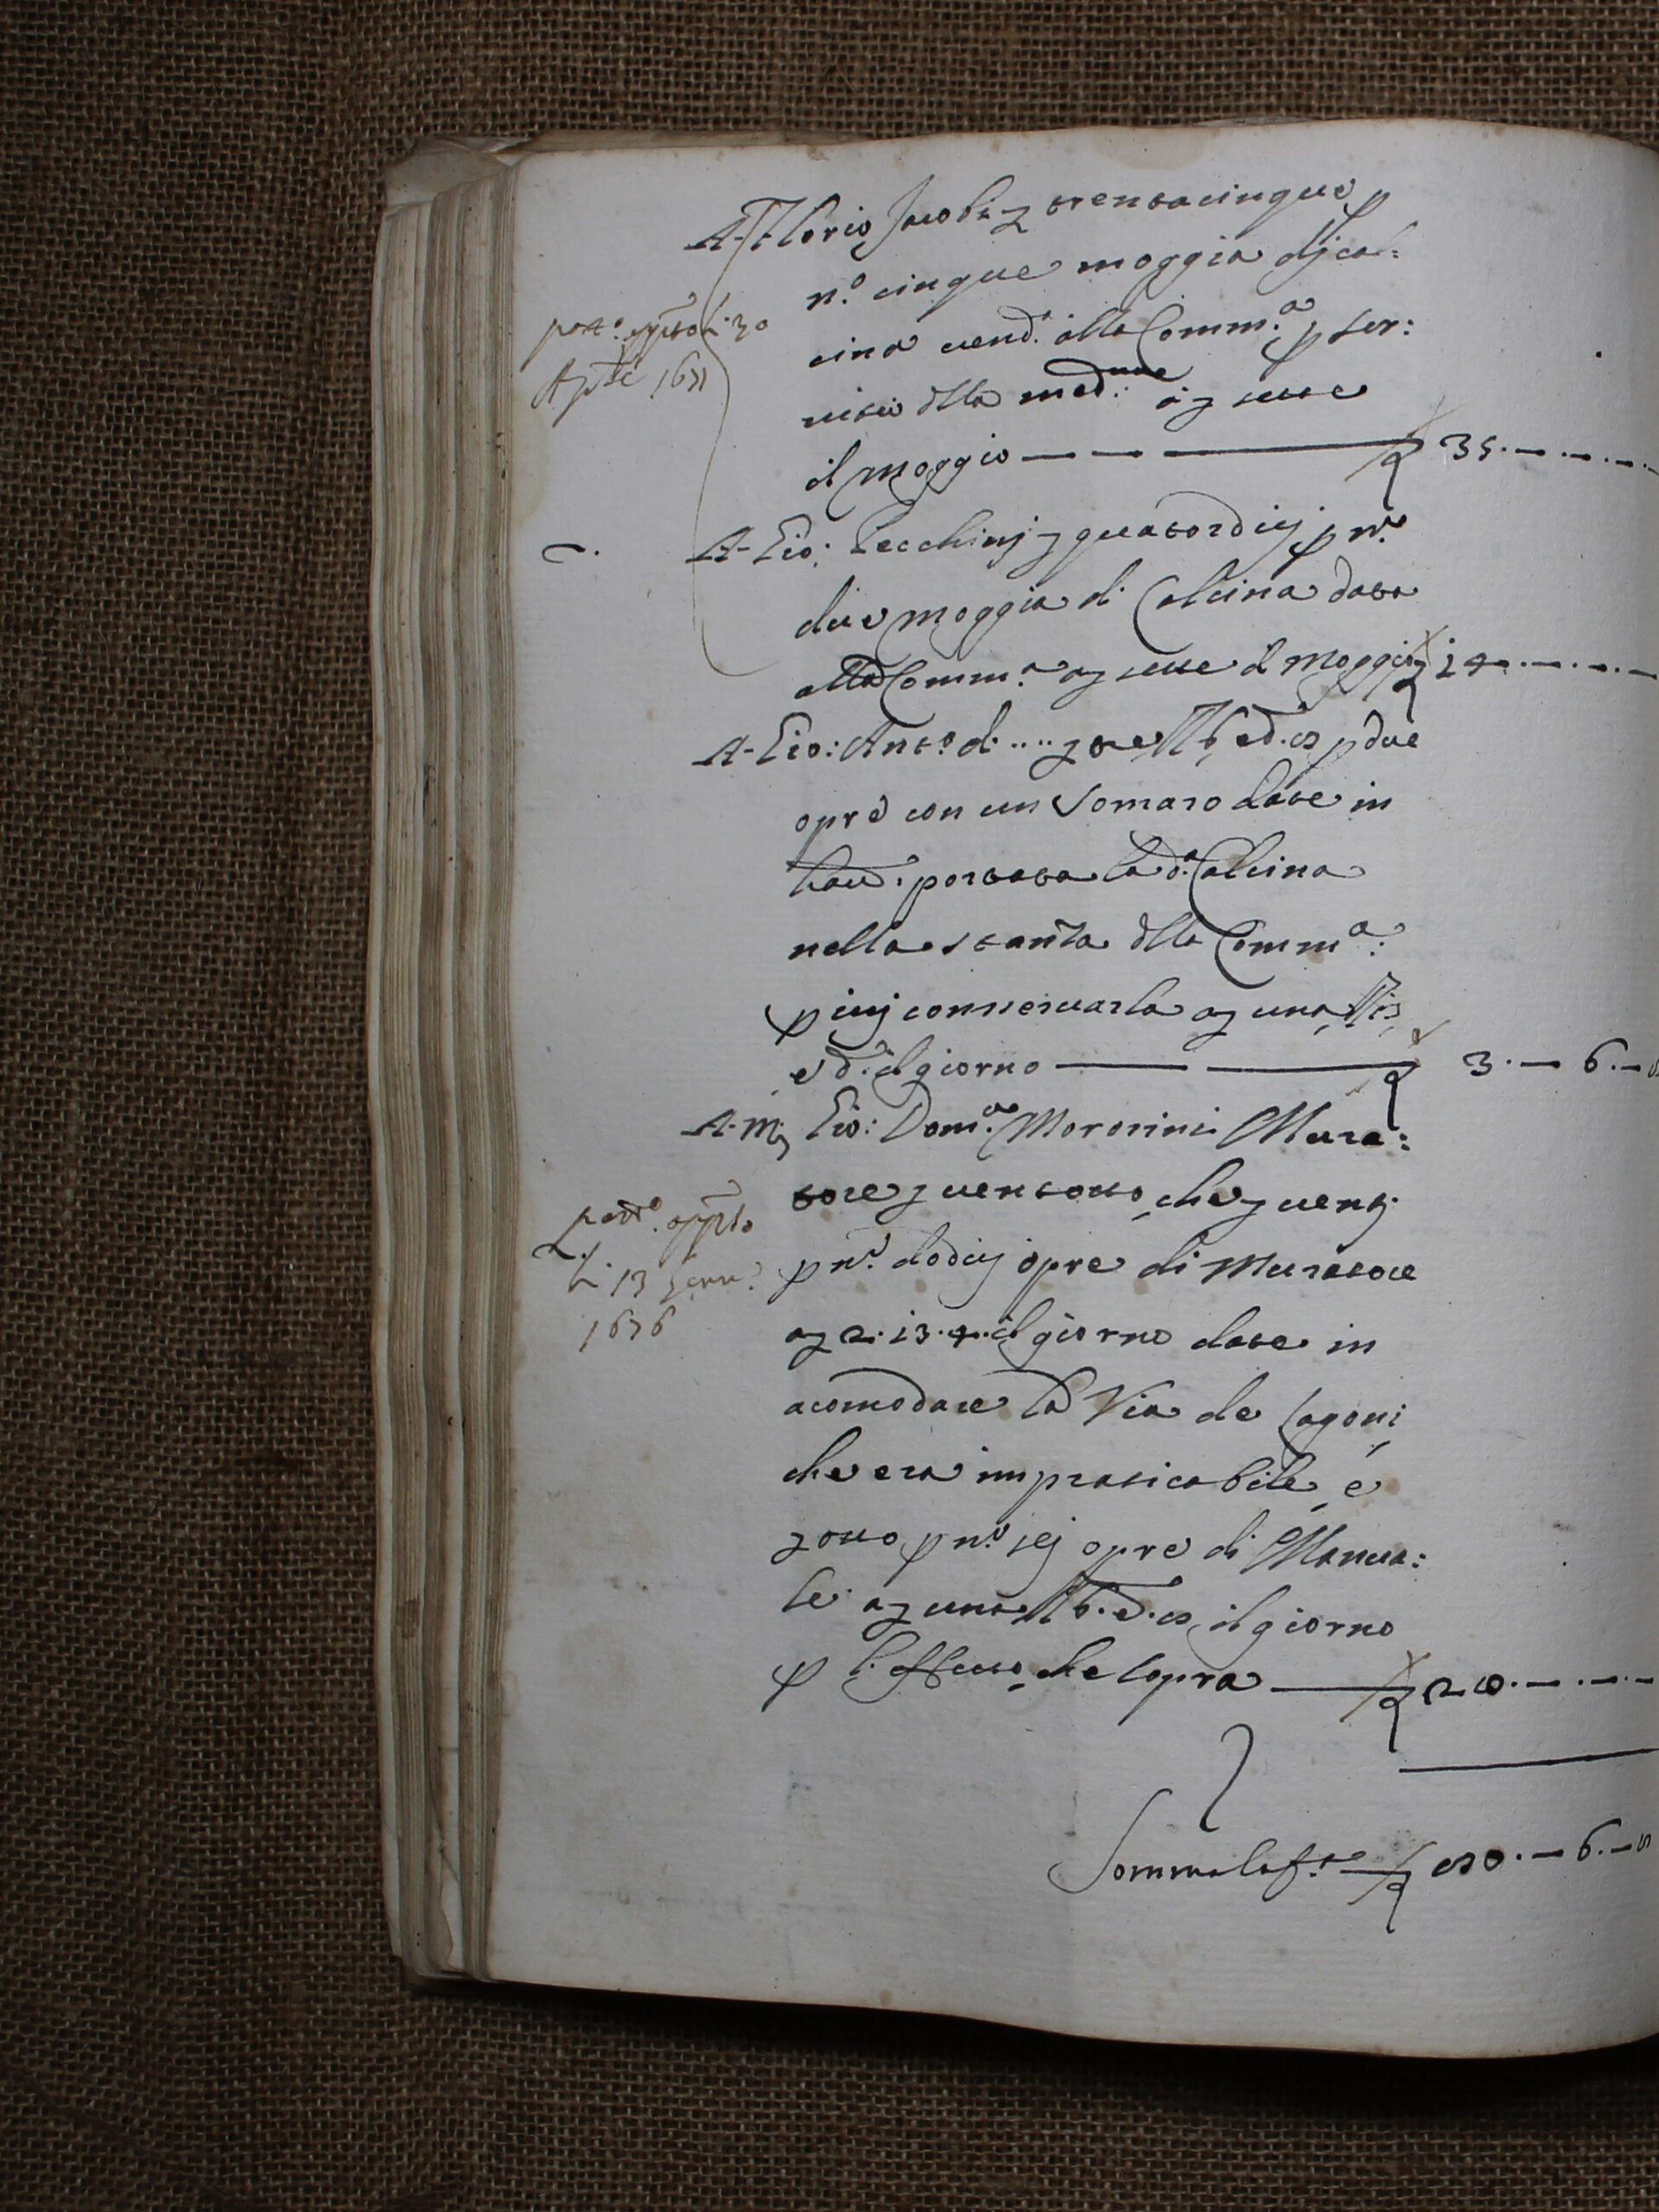 A Florio Jacobi £ trentacinque p
n.o cinque moggia dj cal:
cina vend.a alla Comm.a p ser:
vitio dlla med.a a £ sette
il moggio — — — £ 35.—.—.—
part.o li 30
Aple 1631
A Gio: Cecchinj £ quatordicj p n.o
due moggia di Calcina data
alla Comm.a a £ sette il moggio £ 14.—.—.—
A Gio: Ant.o di .... £ tre 6 e d. 8 p due
opre con un Somaro date in
haver portata la d.a Calcina
nella stanza dlla Comm.a:
p ivj conservarla a £ una
e d. il giorno — — £ 3.— 6.—
A m.o Gio: Dom.co Morosini Mura:
tore £ ventotto, che £ venti
p n.o dodicj opre di Muratore
a £ 2.13.4. il giorno date in
acomodare la Via de Lagoni
che era impraticabile, e
£ otto p n.o sej opre di Manua:
le a £ una 6. d. 8 il giorno
p l'effetto che sopra — £ 28.—.—.—
part.o
li 13 Genn.o
1636
Somma la f.a — £ 80.— 6.— 8